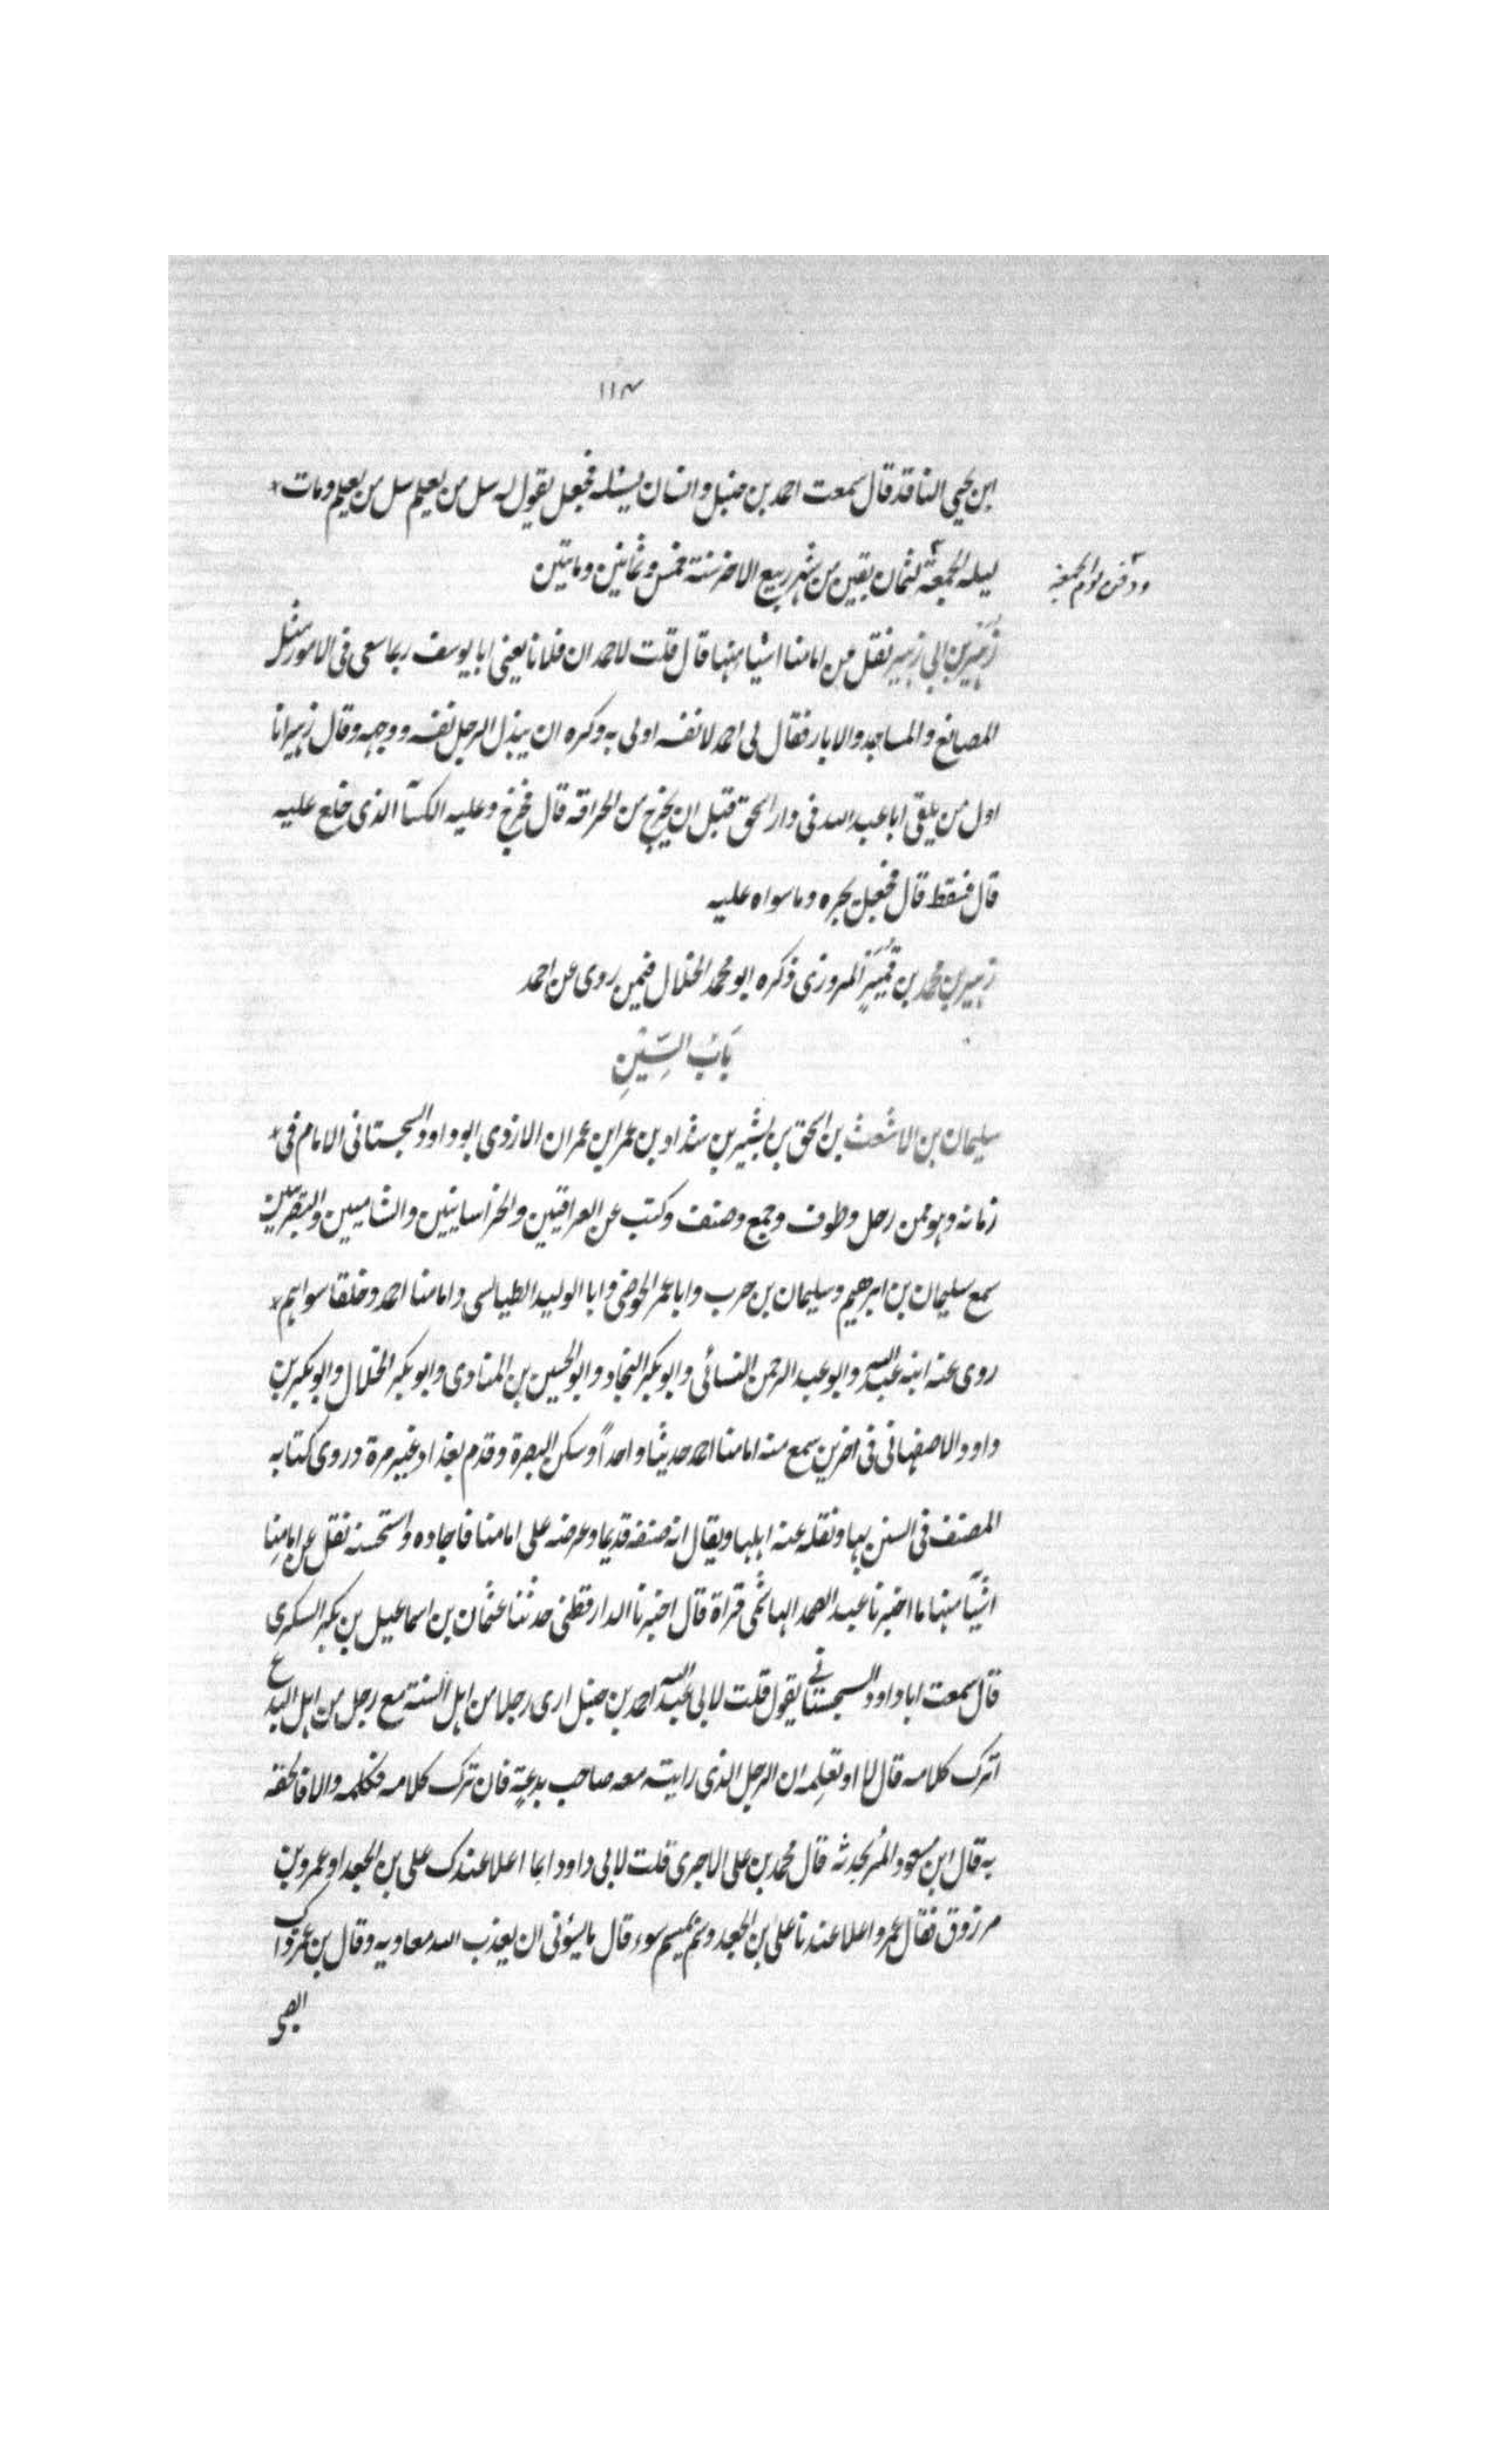 ١١٤
ابن يحيى الناقد قال سمعت احمد بن حنبل وانسان يسئله فجعل يقول له سل من يعلم سل من يعلم ومات
ليلة الجمعة لثمان بقين من شهر ربيع الاخر سنة خمس وثمانين ومايتين
ودفن يوم الجمعة
زهير بن ابي زهير نقل من امامنا اشياء منها قال قلت لاحمد ان فلانا يعنى ابا يوسف ربما سعى فى الامور مثل
المصانع والمساجد والابار فقال لى احمد لا نفسه اولى به وكره ان يبذل الرجل نفسه ووجهه وقال زهير انا
اول من يلقى ابا عبد الله فى دار اسحق قبل ان يخرج من الحراقة قال فخرج وعليه الكسآ الذى خلع عليه
قال فسقط قال فجعل يجره وما سواه عليه
زهير بن محمد بن قُمَيْر المروزى ذكره ابو محمد الخلال فيمن روى عن احمد
بَابُ السِّيْنِ
سليمان بن الاشعث بن اسحق بن بشير بن شداد بن عمر ابن عمران الازدى ابو داود السجستانى الامام فى
زمانه وهو ممن رحل وطوف وجمع وصنف وكتب عن العراقيين والخراسانيين والشاميين والبصريين
سمع سليمان بن ابرهيم وسليمان بن حرب وابا عمر الحوضى وابا الوليد الطيالسى وامامنا احمد وخلقا سواهم
روى عنه ابنه عبد الله وابو عبد الرحمن النسائى وابو بكر النجاد وابو الحسين بن المنادى وابو بكر الخلال وابو بكر بن
داود الاصفهانى فى اخرين سمع منه امامنا احمد حديثا واحداً وسكن البصرة وقدم بغداد غير مرة وروى كتابه
المصنف فى السنن بها ونقله عنه اهلها ويقال انه صنفه قديما وعرضه على امامنا فاجاده واستحسنه نقل عن امامنا
اشيآ منها ما اخبرنا عبد الصمد الهاشمى قراة قال اخبرنا الدارقطنى حدثنا عثمان بن اسماعيل بن بكر السكرى
قال سمعت ابا داود السجستانى يقول قلت لابى عبد الله احمد بن حنبل ارى رجلا من اهل السنة مع رجل من اهل البدع
اترك كلامه قال لا او تعلمه ان الرجل الذى رايته معه صاحب بدعة فان ترك كلامه فكلمه والا فالحقه
به قال ابن مسعود المرء بخدنه قال محمد بن على الاجرى قلت لابى داود ايما اعلا عندك على بن الجعد او عمرو بن
مرزوق فقال عمرو اعلا عندنا على بن الجعد وسم بميسم سوء قال ما يسؤنى ان يعذب الله معاويه وقال بن عمر ذاك
الصبى